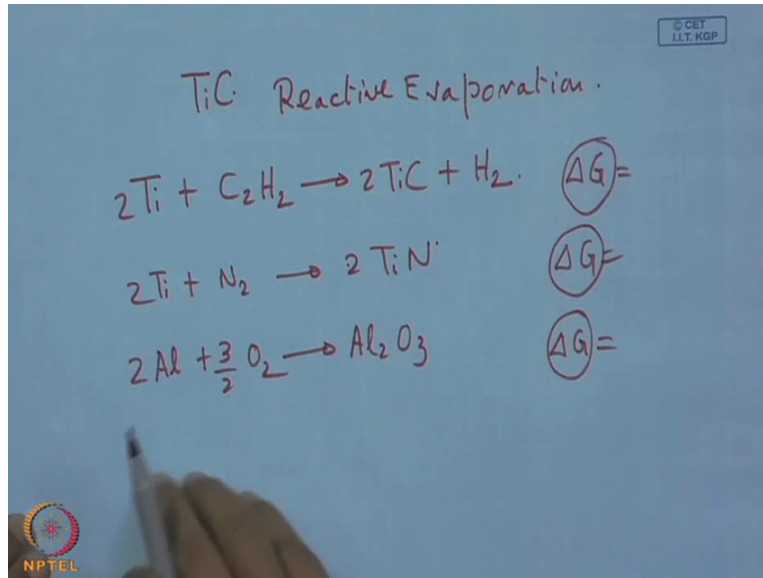 © CET
I.I.T. KGP
TiC Reactive Evaporation.
2Ti + C₂H₂ → 2TiC + H₂. ΔG =
2Ti + N₂ → 2 TiN ΔG =
2Al + 3/2 O₂ → Al₂O₃ ΔG =
NPTEL